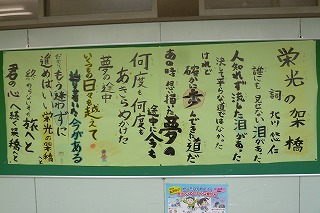 栄光の架橋
詞 北川悠仁
誰にも見せない泪があった
人知れず流した泪があった
決して平らな道ではなかった
けれど
確かに歩んで来た道だ
あの時想い描いた夢の
途中に今も
何度も何度も
あきらめかけた
夢の途中
いくつもの日々を越えて
辿り着いた今がある
だからもう迷わずに
進めばいい栄光の架橋へ
終わらないその旅へと
君の心へ続く架橋へと